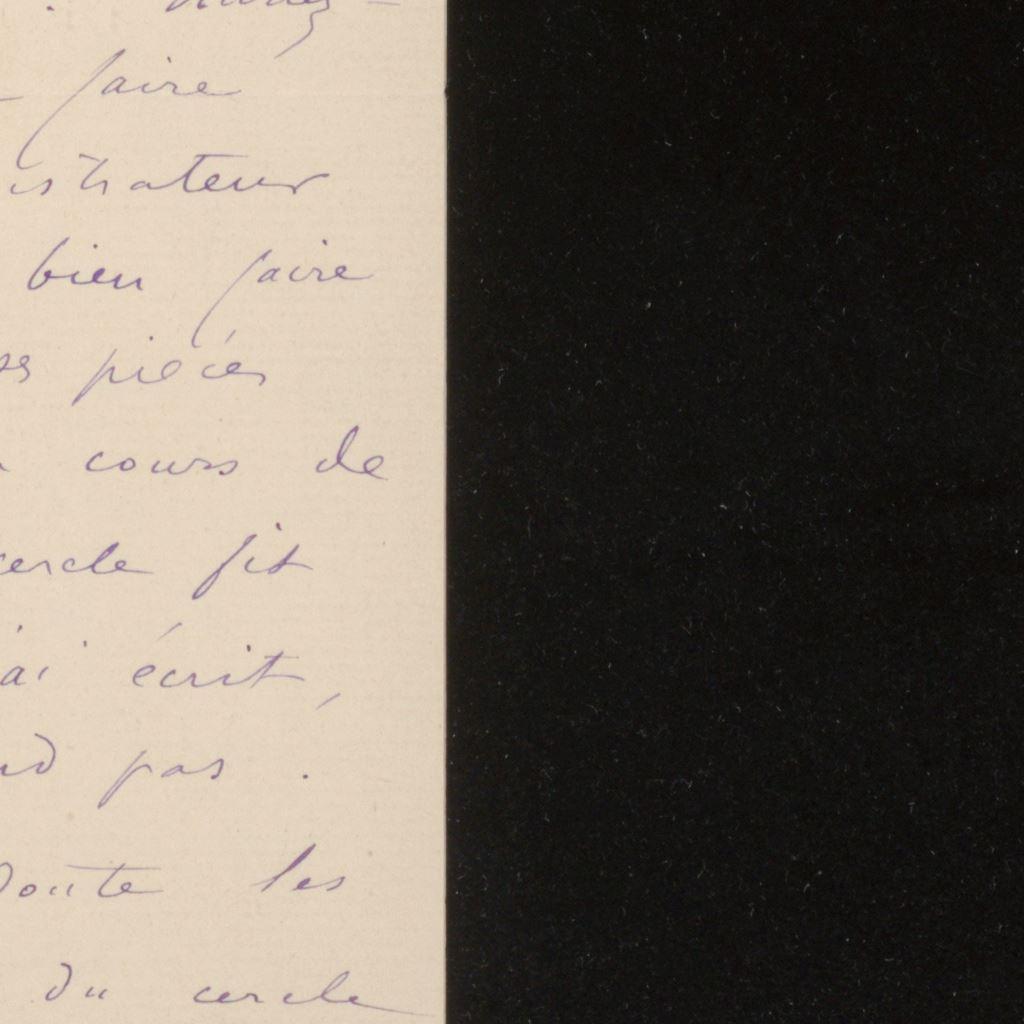 faire
istrateur
bien faire
ses pièces
cours de
cercle fit
ai écrit,
pas.
doute les
du cercle